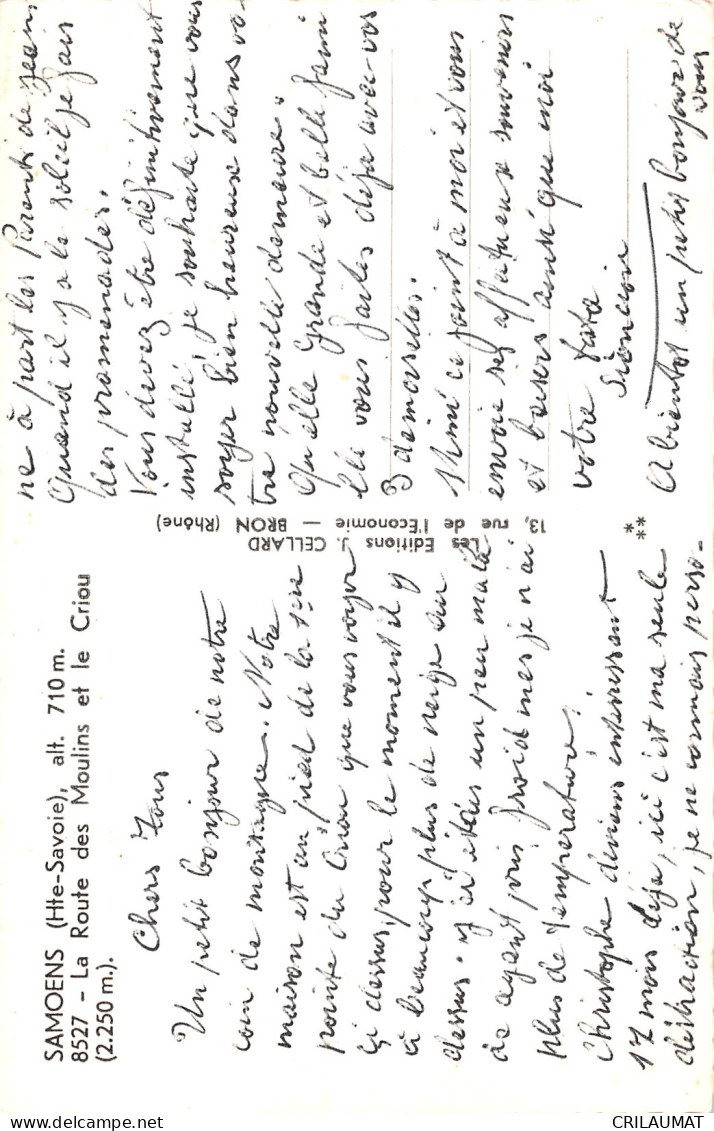 SAMOENS (Hte-Savoie), alt. 710 m.
8527 - La Route des Moulins et le Criou
(2.250 m.).
Chers Tous
Un petit bonjour de notre
coin de montagne. Notre
maison est au pied de la 1ère
pointe du Criou que vous voyez
ci dessus, pour le moment il y
a beaucoup plus de neige sur
dessus. J'ai étais un peu mala
de ayant pris froid mes je n'ai
plus de température.
Christophe deviens intérissant
17 mois déjà, ici c'est ma seule
distraction, je ne connais perso-
ne à part les Parents de Jean
Quand il y a le soleil je fais
des promenades.
Vous devez être définitivement
installé, je souhaite que vous
soyez bien heureuse dans vo
tre nouvelle demeure.
Qu'elle Grande et belle fami
lle vous faites déjà avec vos
3 demoiselles.
Mimi ce joint à moi et vous
envoie ses affectueux souvenirs
et baisers ainsi que moi
votre Tata
A bientot un petit bonjour de
vous
Les Editions J. CELLARD
13, rue de l'Economie — BRON (Rhône)
**
*
CRILAUMAT